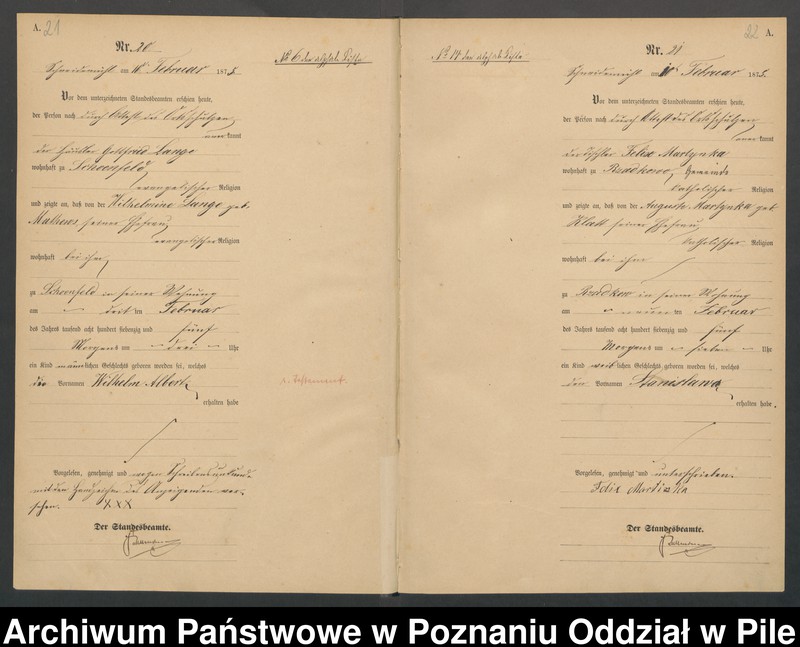 A. 21
Nr. 20
No 6 der alphab. Liste
Schneidemühl am 10 Februar 1875.
Vor dem unterzeichneten Standesbeamten erschien heute,
der Person nach durch Attest des Ortsschulzen
kannt
der Häusler Gottfried Lange
wohnhaft zu Schoenfeld,
evangelischer Religion
und zeigte an, daß von der Wilhelmine Lange geb.
seiner Ehefrau
evangelischer Religion
wohnhaft bei ihm,
zu Schoenfeld in seiner Wohnung
am drei ten Februar
des Jahres tausend acht hundert siebenzig und fünf
Morgens um drei Uhr
ein Kind männlichen Geschlechts geboren worden sei, welches
die Vornamen Wilhelm Albert
erhalten habe
Vorgelesen, genehmigt und wegen Schreibensunkunde
mit dem Handzeichen des Anzeigenden ver-
sehen. XXX
Der Standesbeamte.
s. Testament.
22 A.
No 14 der alphab. Liste
Nr. 21
Schneidemühl am 10 Februar 1875.
Vor dem unterzeichneten Standesbeamten erschien heute,
der Person nach durch Attest des Ortsschulzen
kannt
der Felix Martynka
wohnhaft zu Gemeinde
katholischer Religion
und zeigte an, daß von der Auguste Martynka geb
Klatt seiner Ehefrau
katholischer Religion
wohnhaft bei ihm
zu in seiner Wohnung
am neun ten Februar
des Jahres tausend acht hundert siebenzig und fünf
Morgens um sieben Uhr
ein Kind weiblichen Geschlechts geboren worden sei, welches
den Vornamen Stanislawa
erhalten habe.
Vorgelesen, genehmigt und unterschrieben.
Felix
Der Standesbeamte.
Archiwum Państwowe w Poznaniu Oddział w Pile